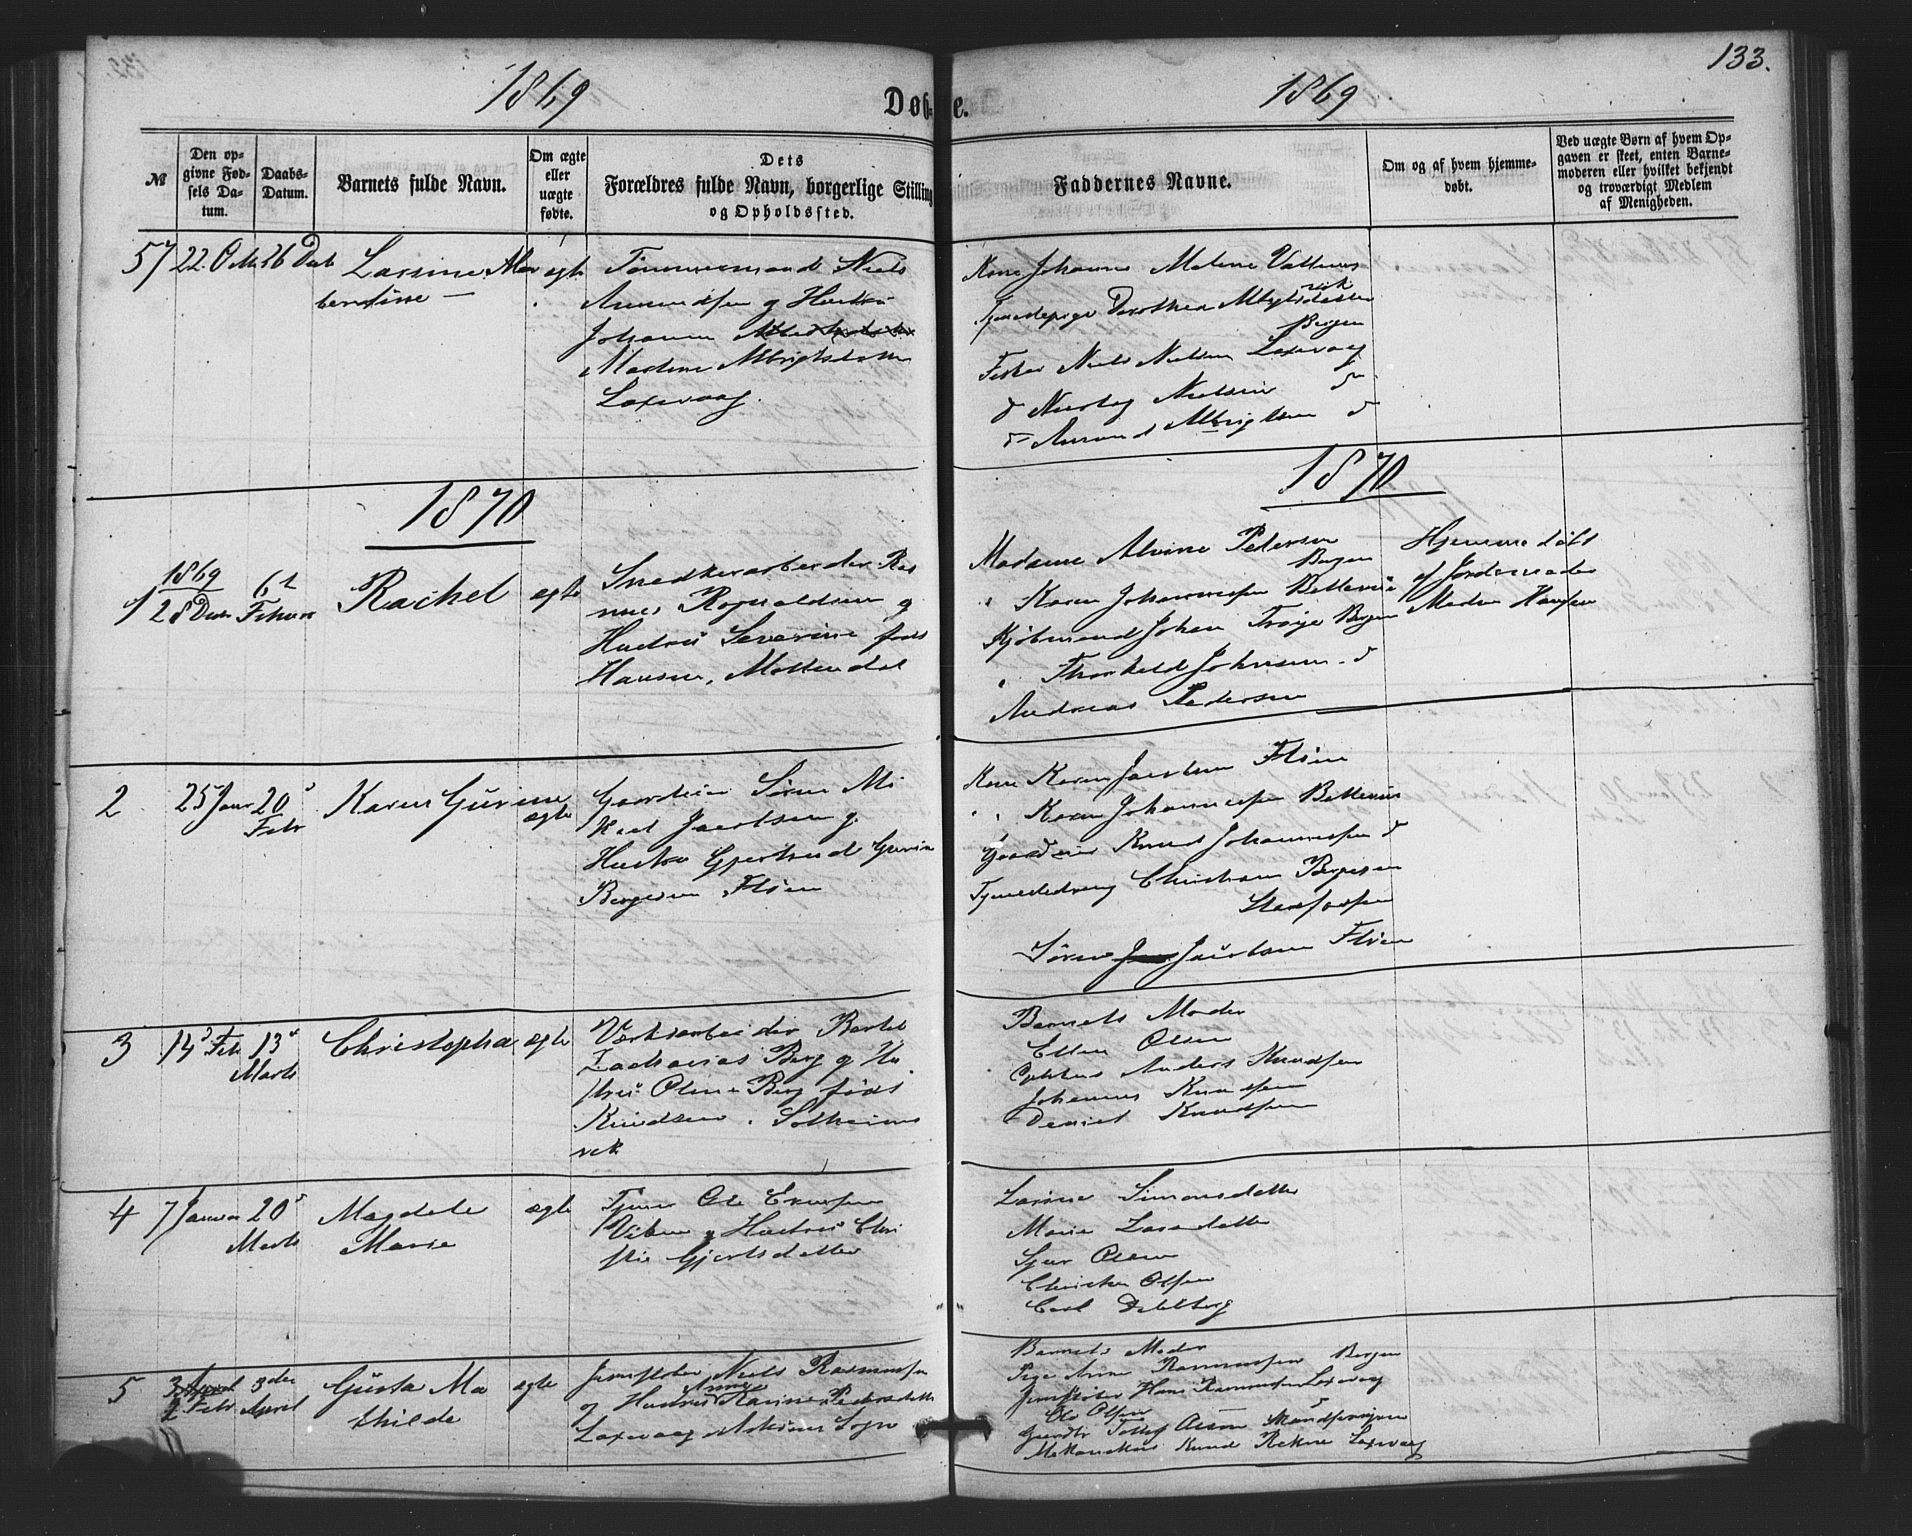 133.
1869
Døb-
e.
1869
№
Den op-
givne Fød-
sels Da-
tum.
Daabs-
Datum.
Barnets fulde Navn.
Om ægte
eller
uægte
fødte.
Dets
Forældres fulde Navn, borgerlige Stilling
og Opholdssted.
Faddernes Navne.
Om og af hvem hjemme-
døbt.
Ved uægte Børn af hvem Op-
gaven er skeet, enten Barne-
moderen eller hvilket bekjendt
og troværdigt Medlem
af Menigheden.
57 22 Octb 26 Decb
Larsine
ægte
Tømmermand Niels
Amundsen og Hustru
Johanne
Martine Albrigtsdatter
Laxevaag.
Kone Johanne Malene
Tjenestepige Dorothea Albrigtsdatter
Bergen
Fisker Niels Nielsen Laxevaag
d Nielsen d
d Amund Albrigtsen d
1870
1870
1
1869
28 Decb
6te
Februar
Rachel
ægte
Snedkerarbeider Ras
mus Rognaldsen og
Hustru Severine født
Hansen, Møllendal
Madame Alvine Pedersen
Bergen
" Karen Johannessen Bellevue
Kjøbmand Johan Trøje Bergen
" Thorkild Johnsen d
Andreas Pedersen
Hjemmedøbt
af Jordemoder
Madm Hansen
2
25 Janr 20d
Febr
Karen Gurine
ægte
Gaardeier Søren Mi
kal Jacobsen og
Hustru Gjertrud Gurine
Bergesen, Fløen
Kone Karen Jacobsen Fløen
" Karen Johannessen Bellevue
Gaardeier Knud Johannessen d
Tjenestedreng Christian Bergesen
Søren Jacobsen Fløen
3
14d Febr 13d
Marts
Christopha
ægte
Værksarbeider Bertel
Zacharias Berg og Hu
stru Oline Berg født
Knudsen, Solheims
vik
Barnets Moder
Ellen Olsen
Anders Knudsen
Johannes Knudsen
Daniel Knudsen
4
7 Januar 20d
Marts
Magdele
Marie
ægte
Ole
og Hustru Chri
stie Gjertsdatter
Larsine Simonsdatter
Marie Larsdatter
Sjur Olsen
Olsen
Carl Dahlberg
5
3 April
2 Febr
3die
April
Gusta Ma
thilde
ægte
Jernstøber Niels Rasmussen
Anne
og Hustru Karine Pedersdatter
Laxevaag Askøens Sogn
Barnets Moder
Pige Anne Rasmussen Bergen
Jernstøber Hans Rasmussen Laxevaag
Ole Olsen d
Olsen
Knud Laxevaag